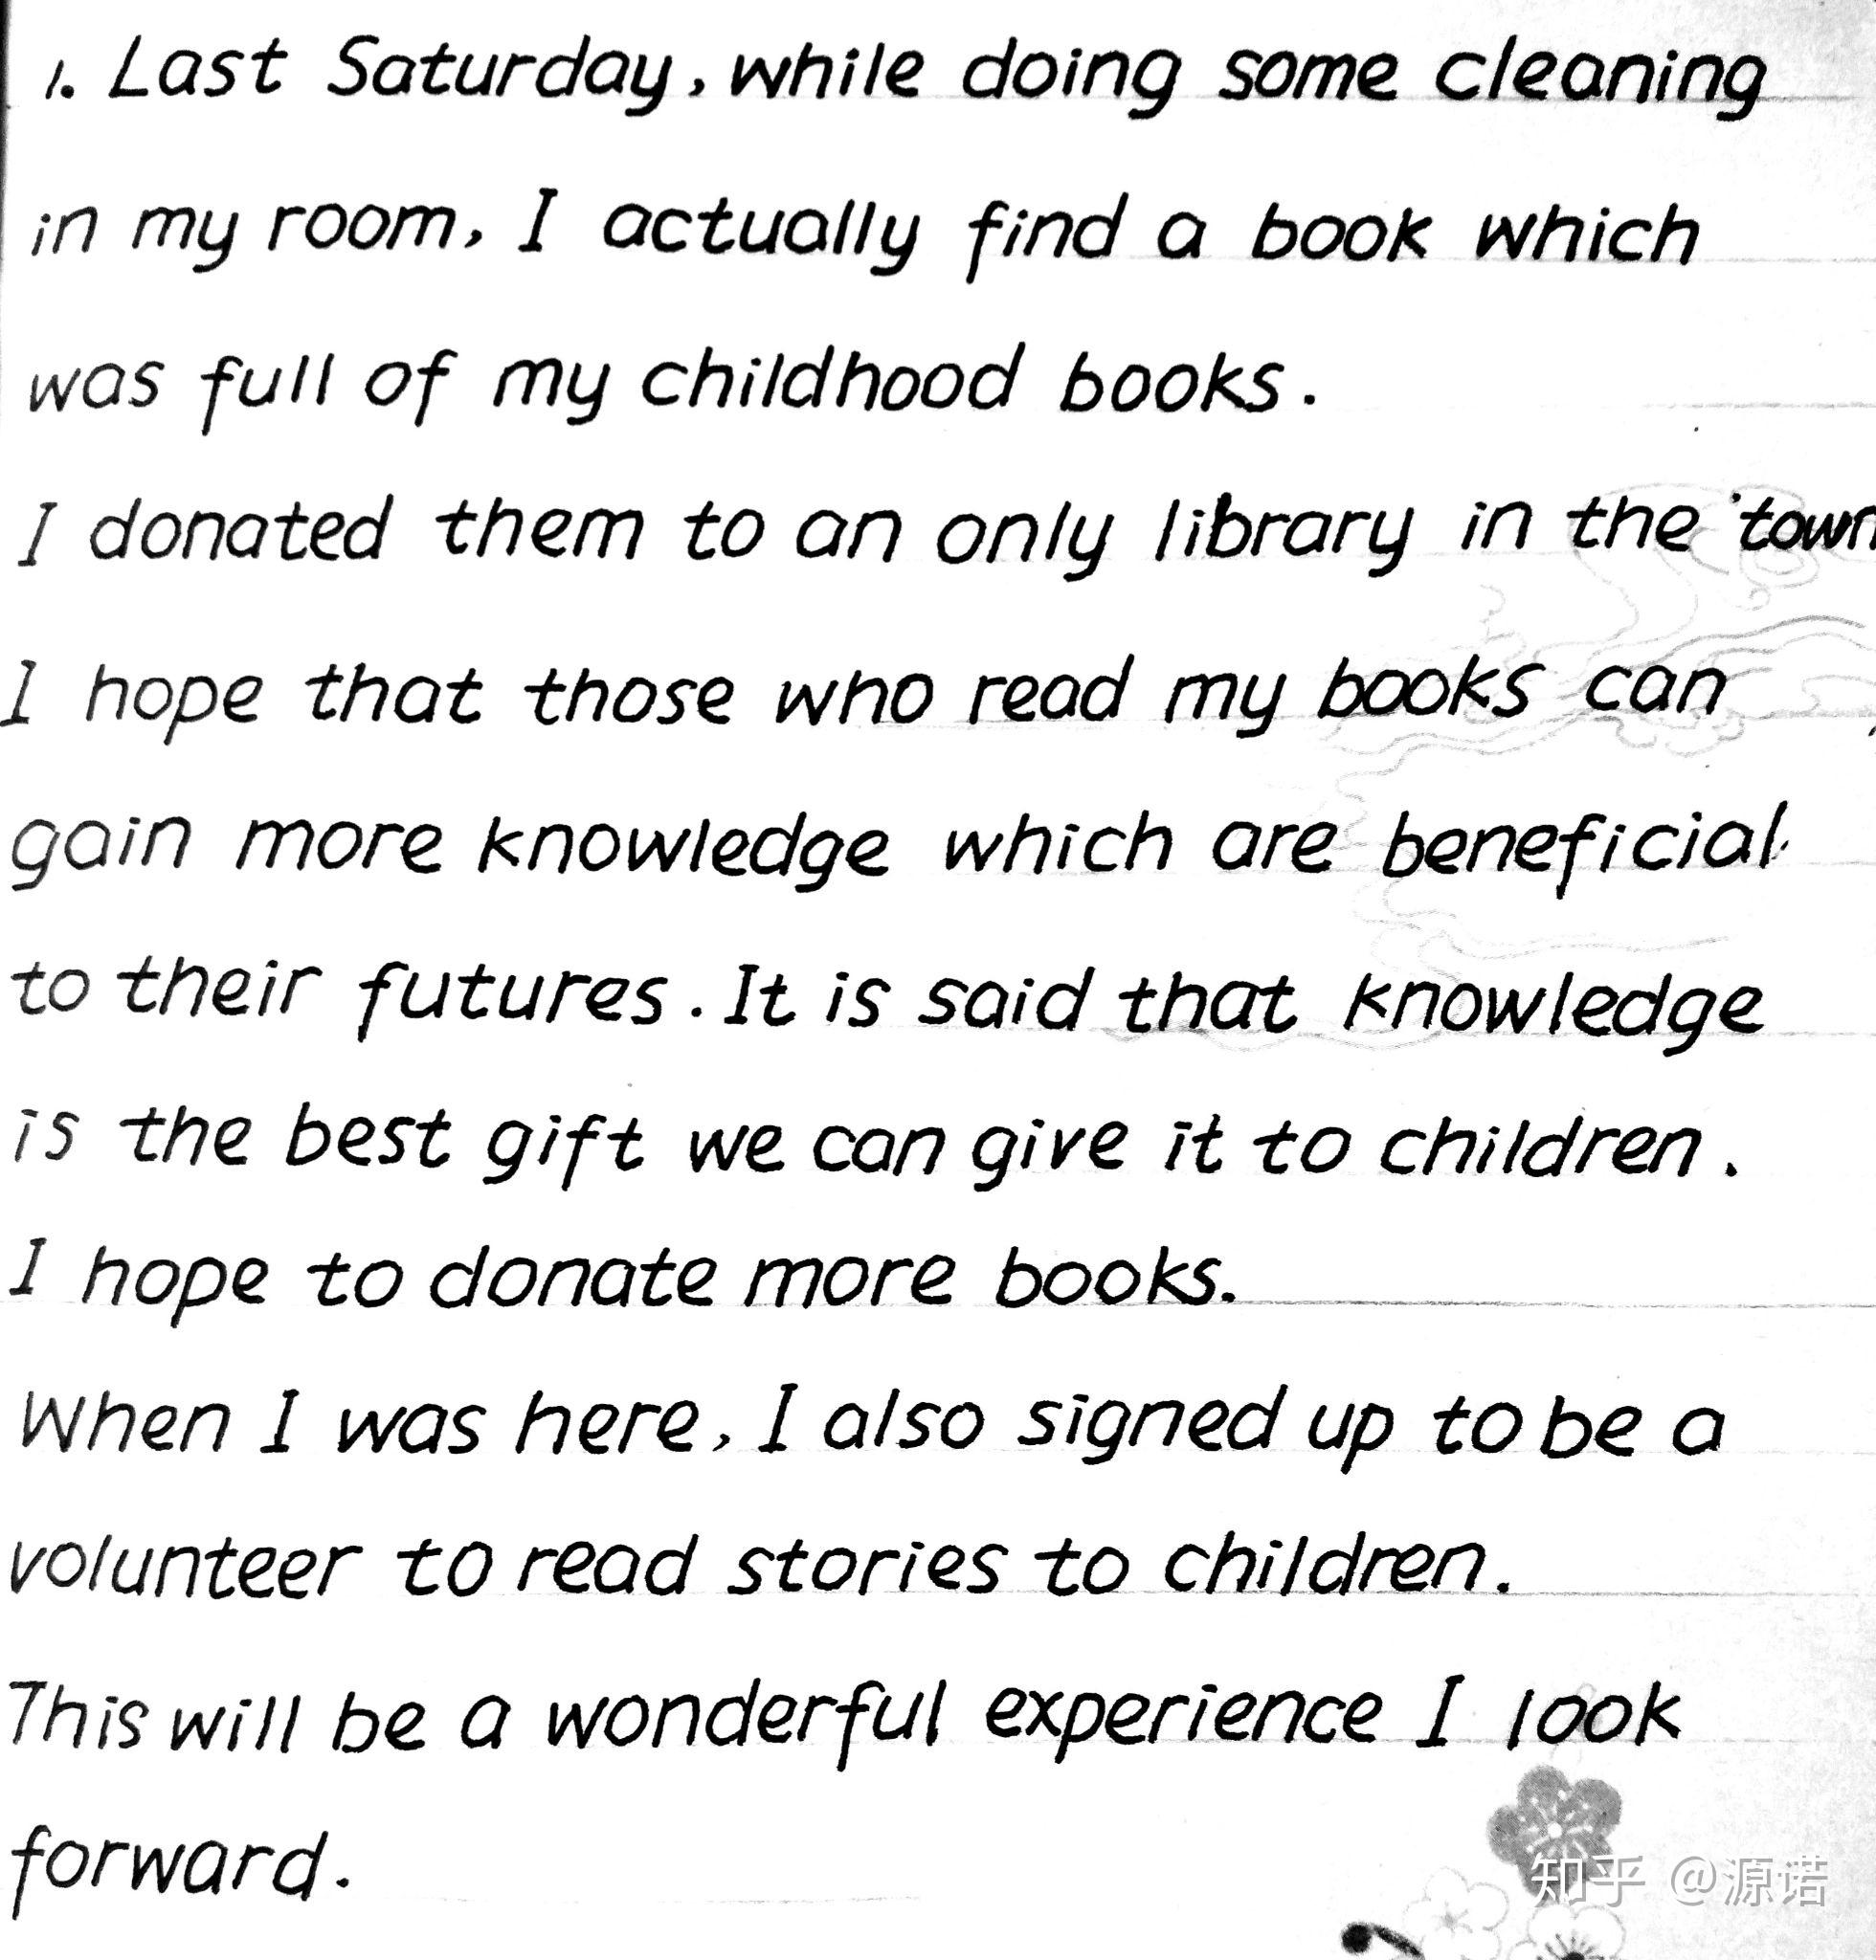 1. Last Saturday, while doing some cleaning
in my room, I actually find a book which
was full of my childhood books.
I donated them to an only library in the town
I hope that those who read my books can
gain more knowledge which are beneficial
to their futures. It is said that knowledge
is the best gift we can give it to children.
I hope to donate more books.
When I was here, I also signed up to be a
volunteer to read stories to children.
This will be a wonderful experience I look
forward.
知乎 @源诺